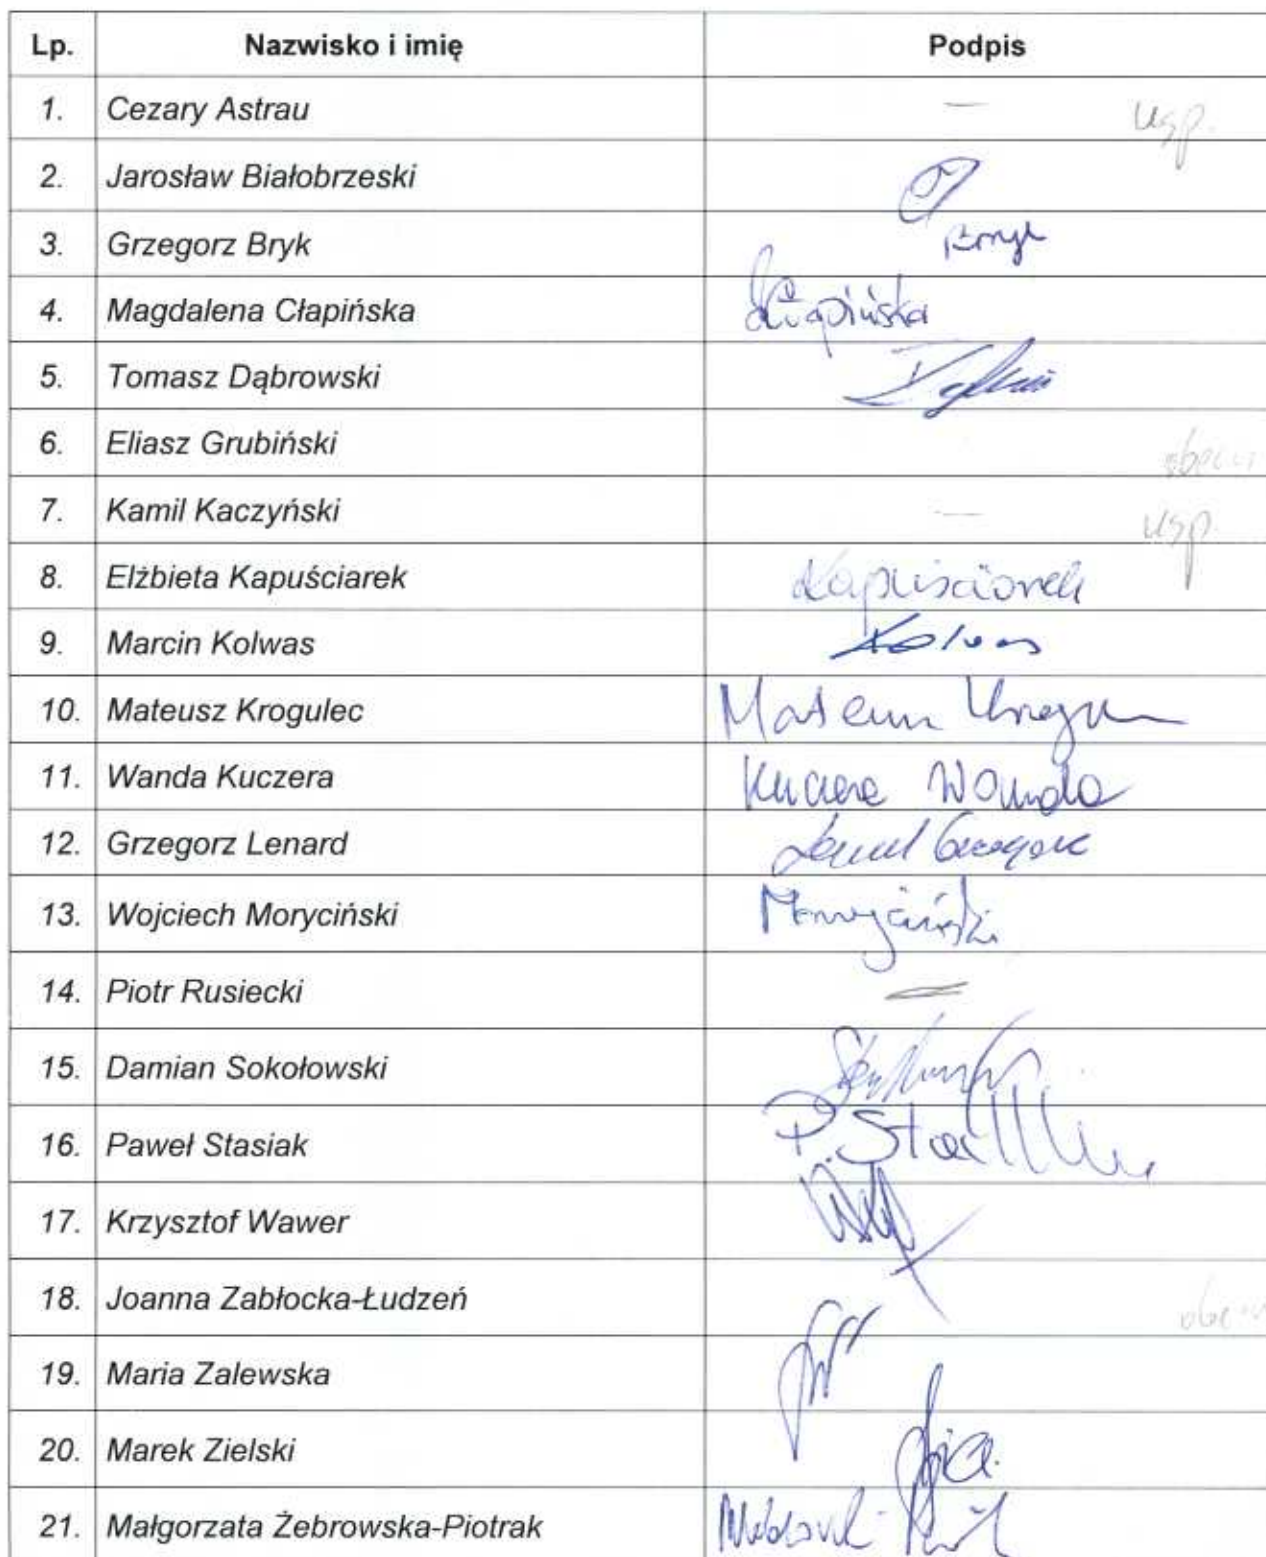 Lp. Nazwisko i imię Podpis
1. Cezary Astrau — usp.
2. Jarosław Białobrzeski
3. Grzegorz Bryk Bryk
4. Magdalena Cłapińska Cłapińska
5. Tomasz Dąbrowski
6. Eliasz Grubiński
7. Kamil Kaczyński — usp.
8. Elżbieta Kapuściarek Kapuściarek
9. Marcin Kolwas Kolwas
10. Mateusz Krogulec Mateusz
11. Wanda Kuczera Kuczera Wanda
12. Grzegorz Lenard Lenard Grzegorz
13. Wojciech Moryciński Moryciński
14. Piotr Rusiecki —
15. Damian Sokołowski
16. Paweł Stasiak P.
17. Krzysztof Wawer
18. Joanna Zabłocka-Łudzeń
19. Maria Zalewska
20. Marek Zielski
21. Małgorzata Żebrowska-Piotrak